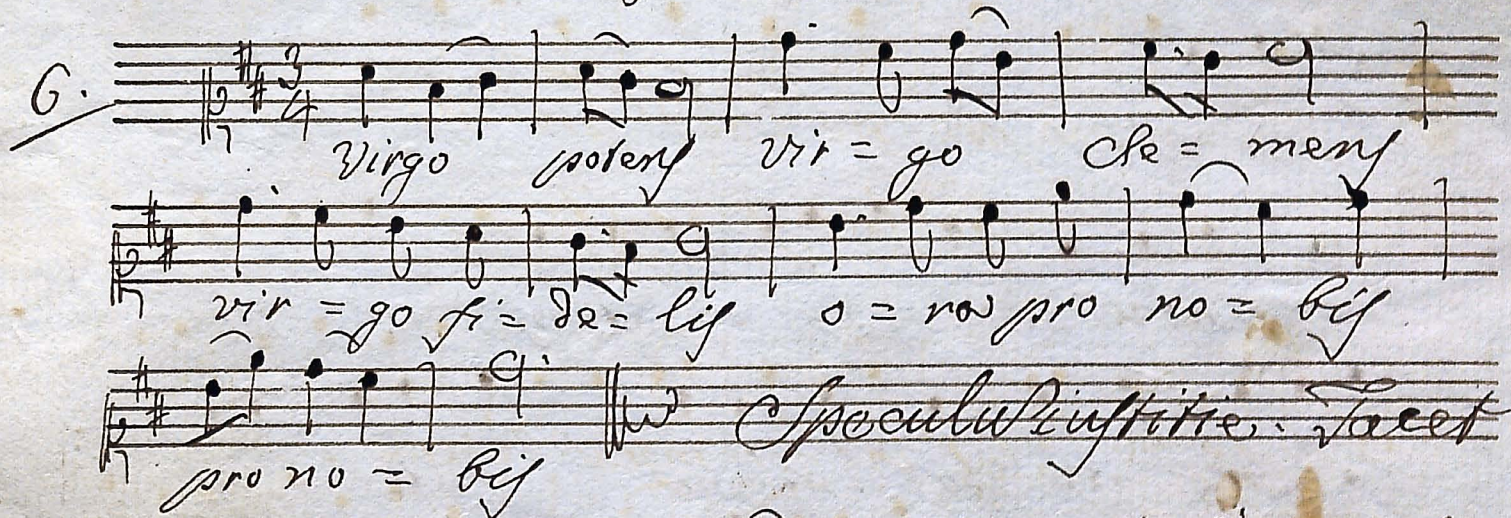 6. 3/4
Virgo potens vir = go cle = mens
vir = go fi = de = lis o = ra pro no = bis
pro no = bis Speculum iustitie. Tacet